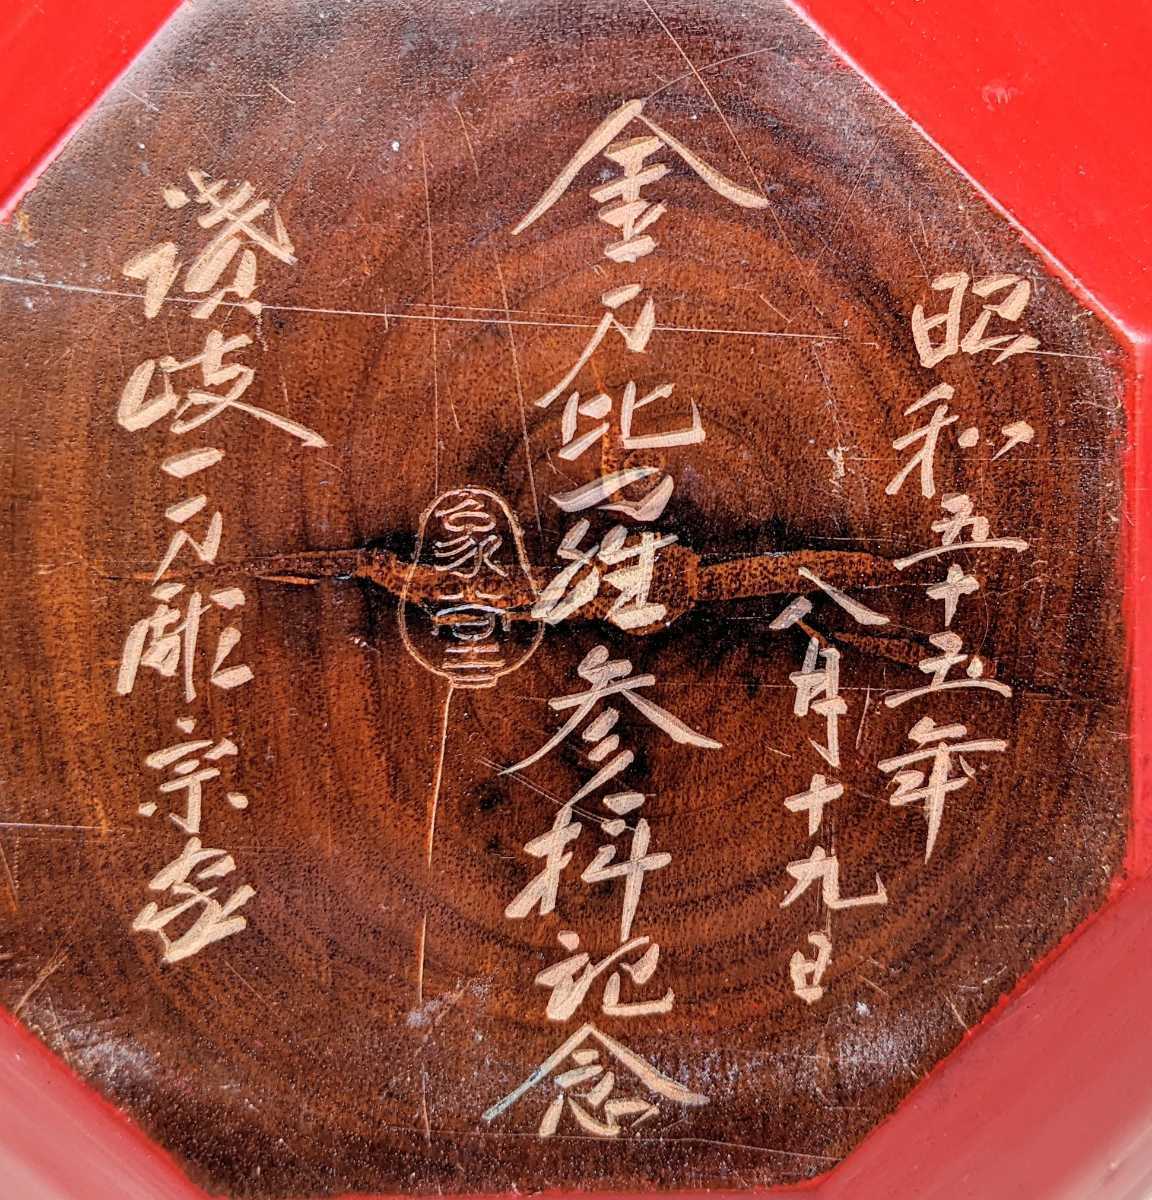 昭和五十五年
八月十九日
金刀比羅参拝記念
讃岐一刀彫宗家
象堂